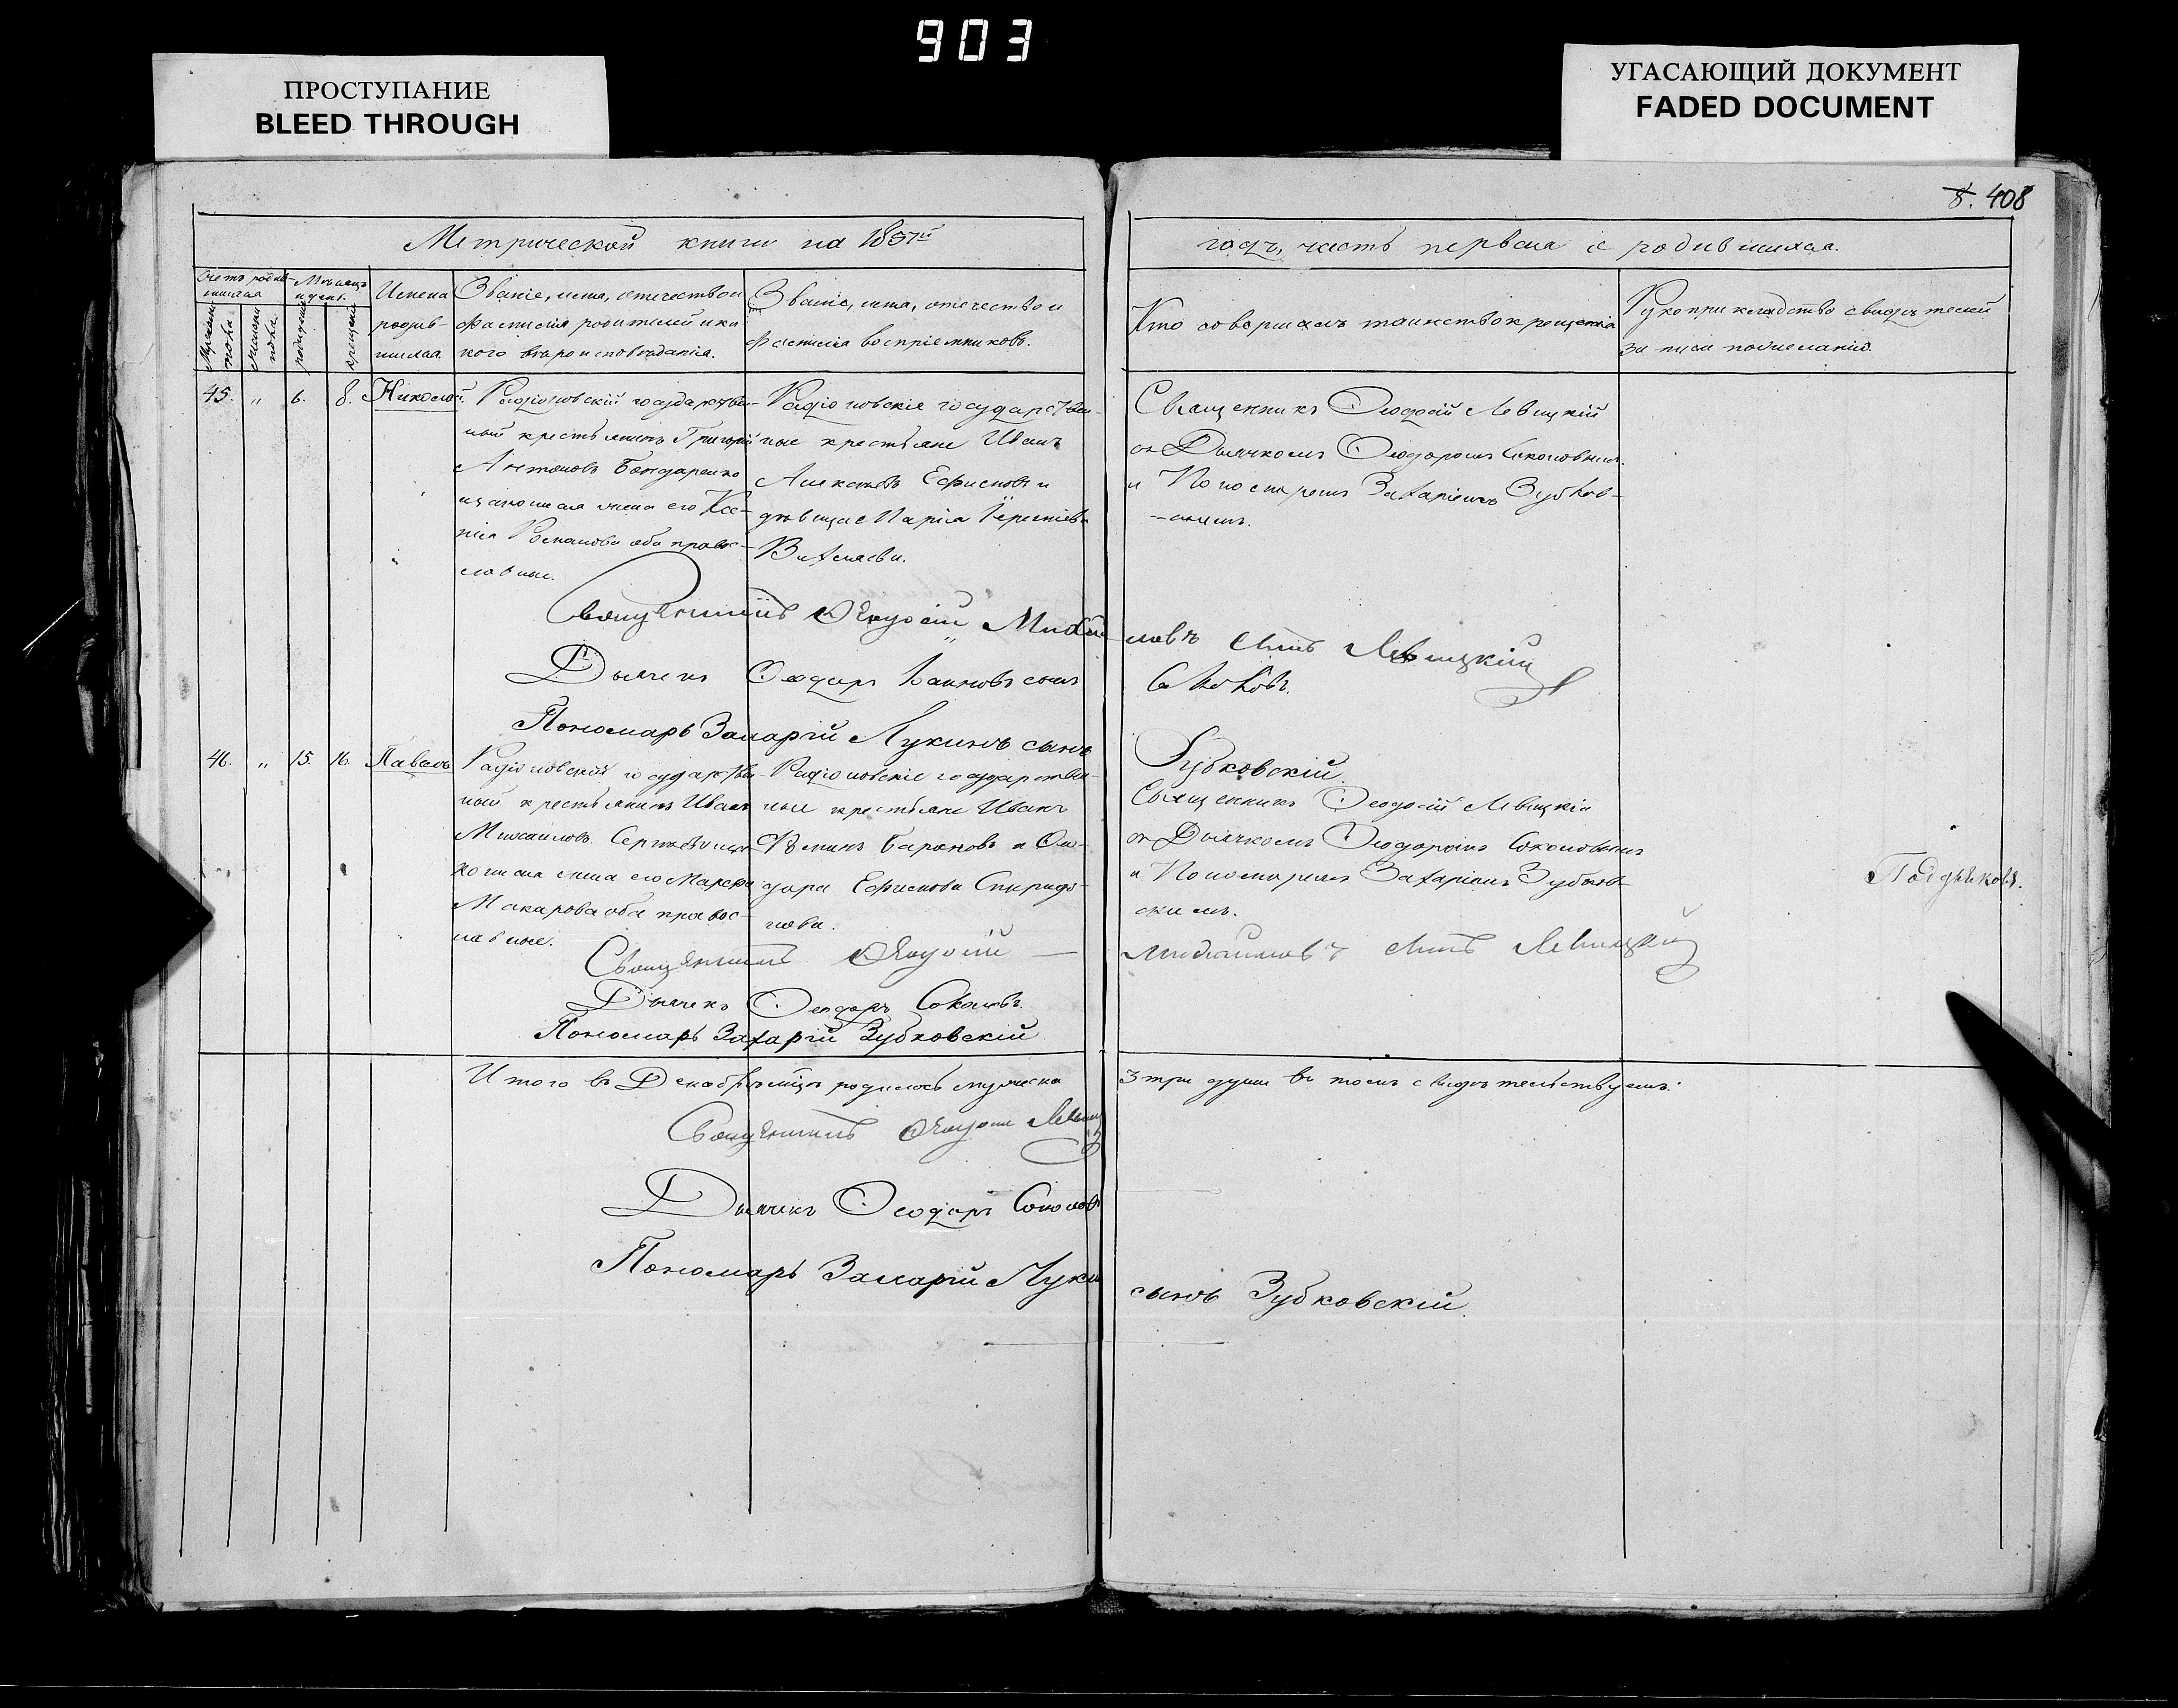 903
ПРОСТУПАНИЕ
BLEED THROUGH
УГАСАЮЩИЙ ДОКУМЕНТ
FADED DOCUMENT
8. 408
Метрической книги на 1837й
годъ, часть первая о родившихся.
Счетъ родившихся
Мѣсяцъ и день.
Мужеска пола
Женска пола.
рожденія
крещенія
Имена
родив-
шихся.
Званіе, имя, отечество и
фамилія родителей и ка
кого вѣроисповѣданія.
Званіе, имя, отечество и
фамилія воспріемниковъ.
Кто совершалъ таинство крещенія
Рукоприкладство свидѣтелей
записи по желанію.
45. „ 6. 8. Николай.
Радіоновскій государствен-
ный крестьянинъ Григорій
Антоновъ Бондаренко
и законная жена его Ксе-
нія Романова оба правос-
лавные.
Радіоновскіе государствен-
ные крестьяне Иванъ
Алексѣевъ Ефимовъ и
дѣвица Марія
Священникъ Ѳеодосій Левицкій
съ Дьячкомъ Ѳеодоромъ Соколовымъ
и Пономаремъ Захаріемъ Зубков-
-скимъ.
Священникъ Ѳеодосій Михай
ловъ сынъ Левицкій
Дьячекъ Ѳеодоръ сынъ
Соколовъ.
Пономарь Захарій Лукинъ сынъ
Зубковскій.
46. „ 15. 16. Павелъ
Радіоновскій государствен-
ный крестьянинъ Иванъ
Михаиловъ
законная жена его Марѳа
Макарова оба правос-
лавные.
Радіоновскіе государствен-
ные крестьяне Иванъ
Барановъ и Ѳео-
дора Ефимова Спиридо-
нова.
Священникъ Ѳеодосій Левицкій
съ Дьячкомъ Ѳеодоромъ Соколовымъ
и Пономаремъ Захаріемъ Зубков-
скимъ.
Священникъ Ѳеодосій —
Михайловъ сынъ Левицкій
Дьячекъ Ѳеодоръ Соколовъ.
Пономарь Захарій Зубковскій
Итого въ Декабрѣ мцѣ родилось мужеска
3 три души въ томъ свидѣтельствуемъ:
Священникъ Ѳеодосій Левицкій
Дьячекъ Ѳеодоръ Соколовъ
Пономарь Захарій Луки
сынъ Зубковскій.